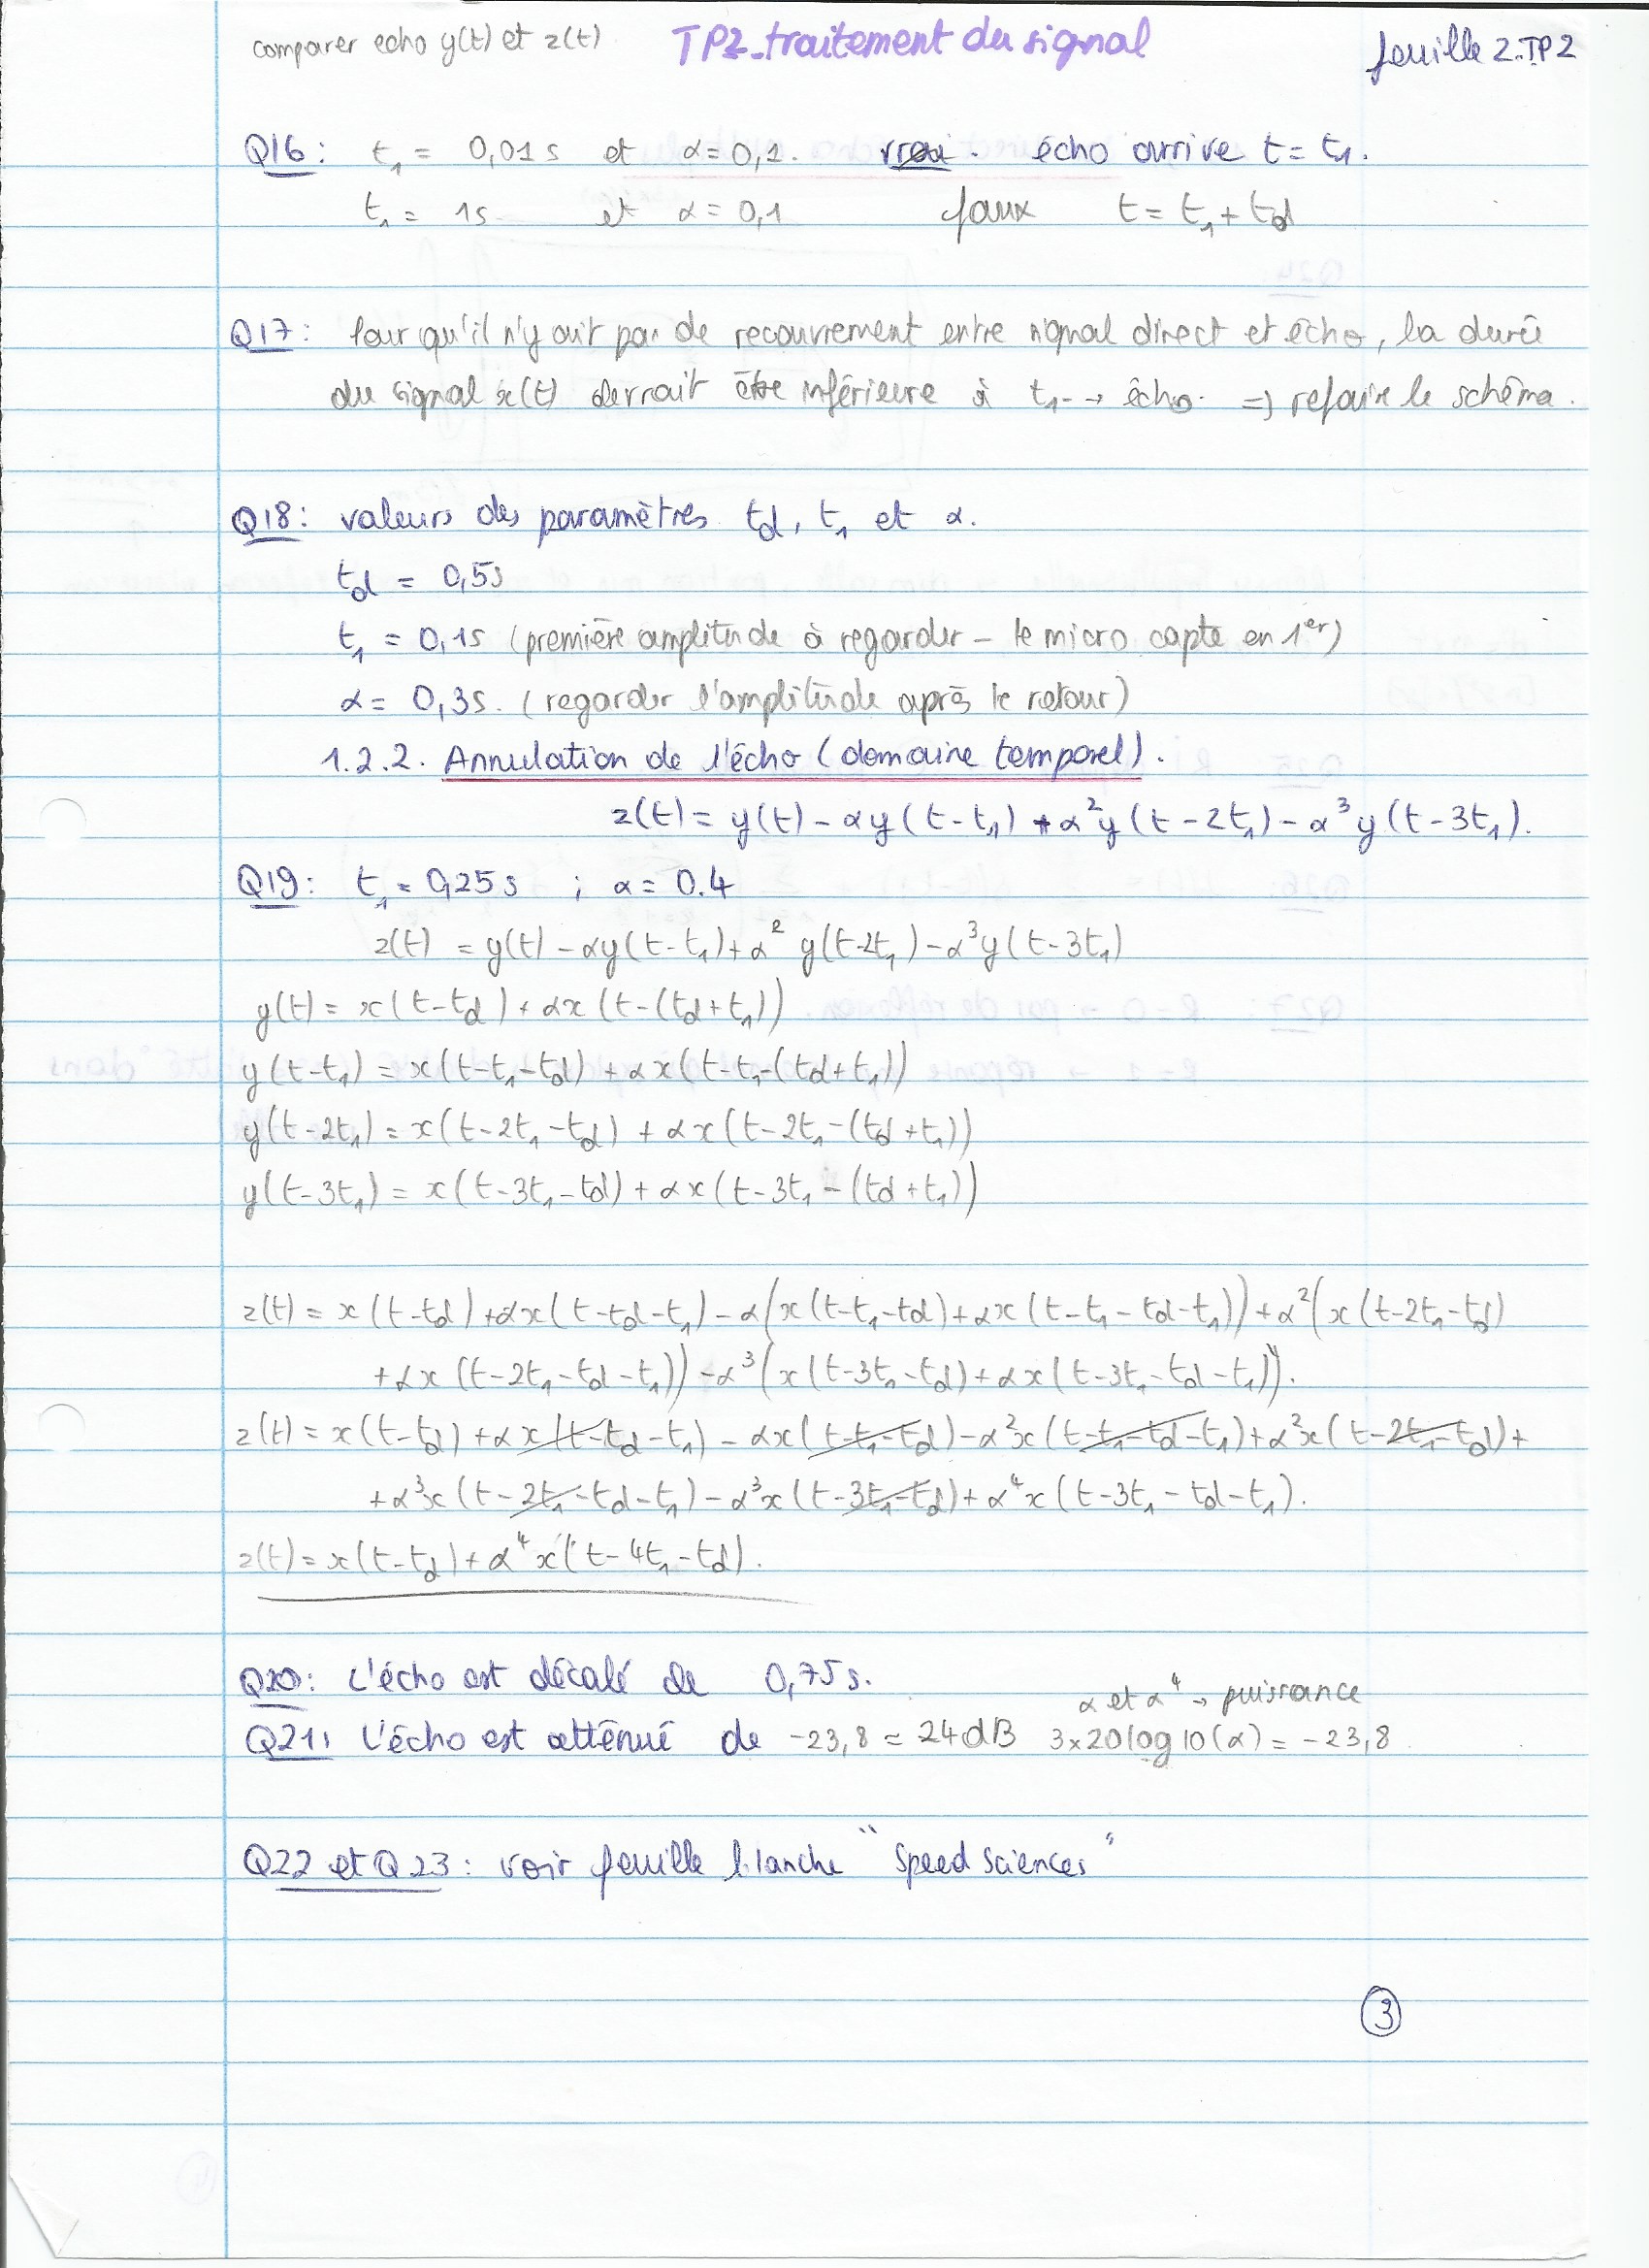 comparer echo y(t) et z(t)
TP2_traitement du signal
feuille 2.TP2
Q16 : t₁ = 0,01s et α = 0,1. vrai. écho arrive t = t₁.
t₁ = 1s et α = 0,1 faux t = t₁ + td
Q17 : Pour qu'il n'y ait pas de recouvrement entre signal direct et écho, la durée
du signal x(t) devrait être inférieure à t₁ → écho. => refaire le schéma.
Q18 : valeurs des paramètres td, t₁ et α.
td = 0,5s
t₁ = 0,1s (première amplitude à regarder - le micro capte en 1er)
α = 0,3s. (regarder l'amplitude après le retour)
1.2.2. Annulation de l'écho (domaine temporel).
z(t) = y(t) - αy(t-t₁) + α²y(t-2t₁) - α³y(t-3t₁).
Q19 : t₁ = 0,25s ; α = 0.4
z(t) = y(t) - αy(t-t₁) + α² y(t-2t₁) - α³y(t-3t₁)
y(t) = x(t-td) + αx(t-(td+t₁))
y(t-t₁) = x(t-t₁-td) + αx(t-t₁-(td+t₁))
y(t-2t₁) = x(t-2t₁-td) + αx(t-2t₁-(td+t₁))
y(t-3t₁) = x(t-3t₁-td) + αx(t-3t₁-(td+t₁))
z(t) = x(t-td) + αx(t-td-t₁) - α(x(t-t₁-td) + αx(t-t₁-td-t₁)) + α²(x(t-2t₁-td)
+ αx(t-2t₁-td-t₁)) - α³(x(t-3t₁-td) + αx(t-3t₁-td-t₁)).
z(t) = x(t-td) + αx(t-td-t₁) - αx(t-t₁-td) - α²x(t-t₁-td-t₁) + α²x(t-2t₁-td) +
+ α³x(t-2t₁-td-t₁) - α³x(t-3t₁-td) + α⁴x(t-3t₁-td-t₁).
z(t) = x(t-td) + α⁴x(t-4t₁-td).
Q20 : L'écho est décalé de 0,75s.
α et α⁴ → puissance
Q21 : L'écho est atténué de -23,8 = 24dB 3×20log10(α) = -23,8
Q22 et Q23 : voir feuille blanche "Speed Sciences"
3